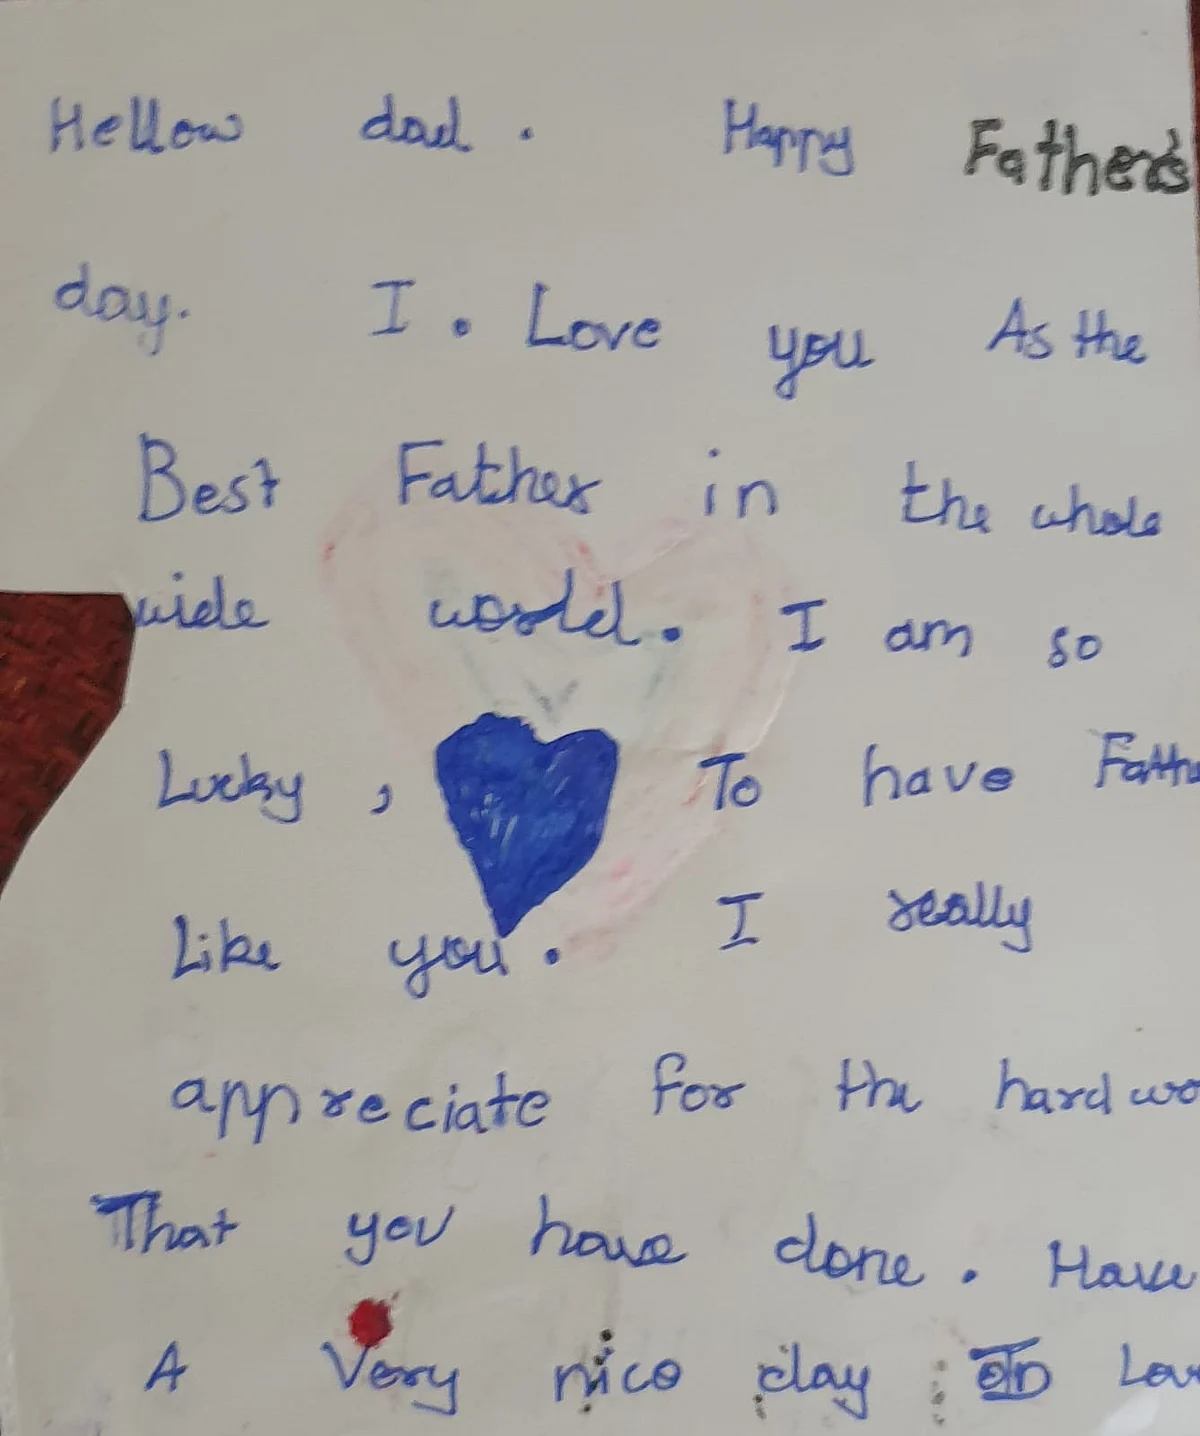 Hellow dad. Happy Father's
day. I. Love you As the
Best Father in the whole
wide world. I am so
Lucky, To have Fathe
Like you. I really
appreciate for the hard wo
That you have done. Have
A Very nice day Lov